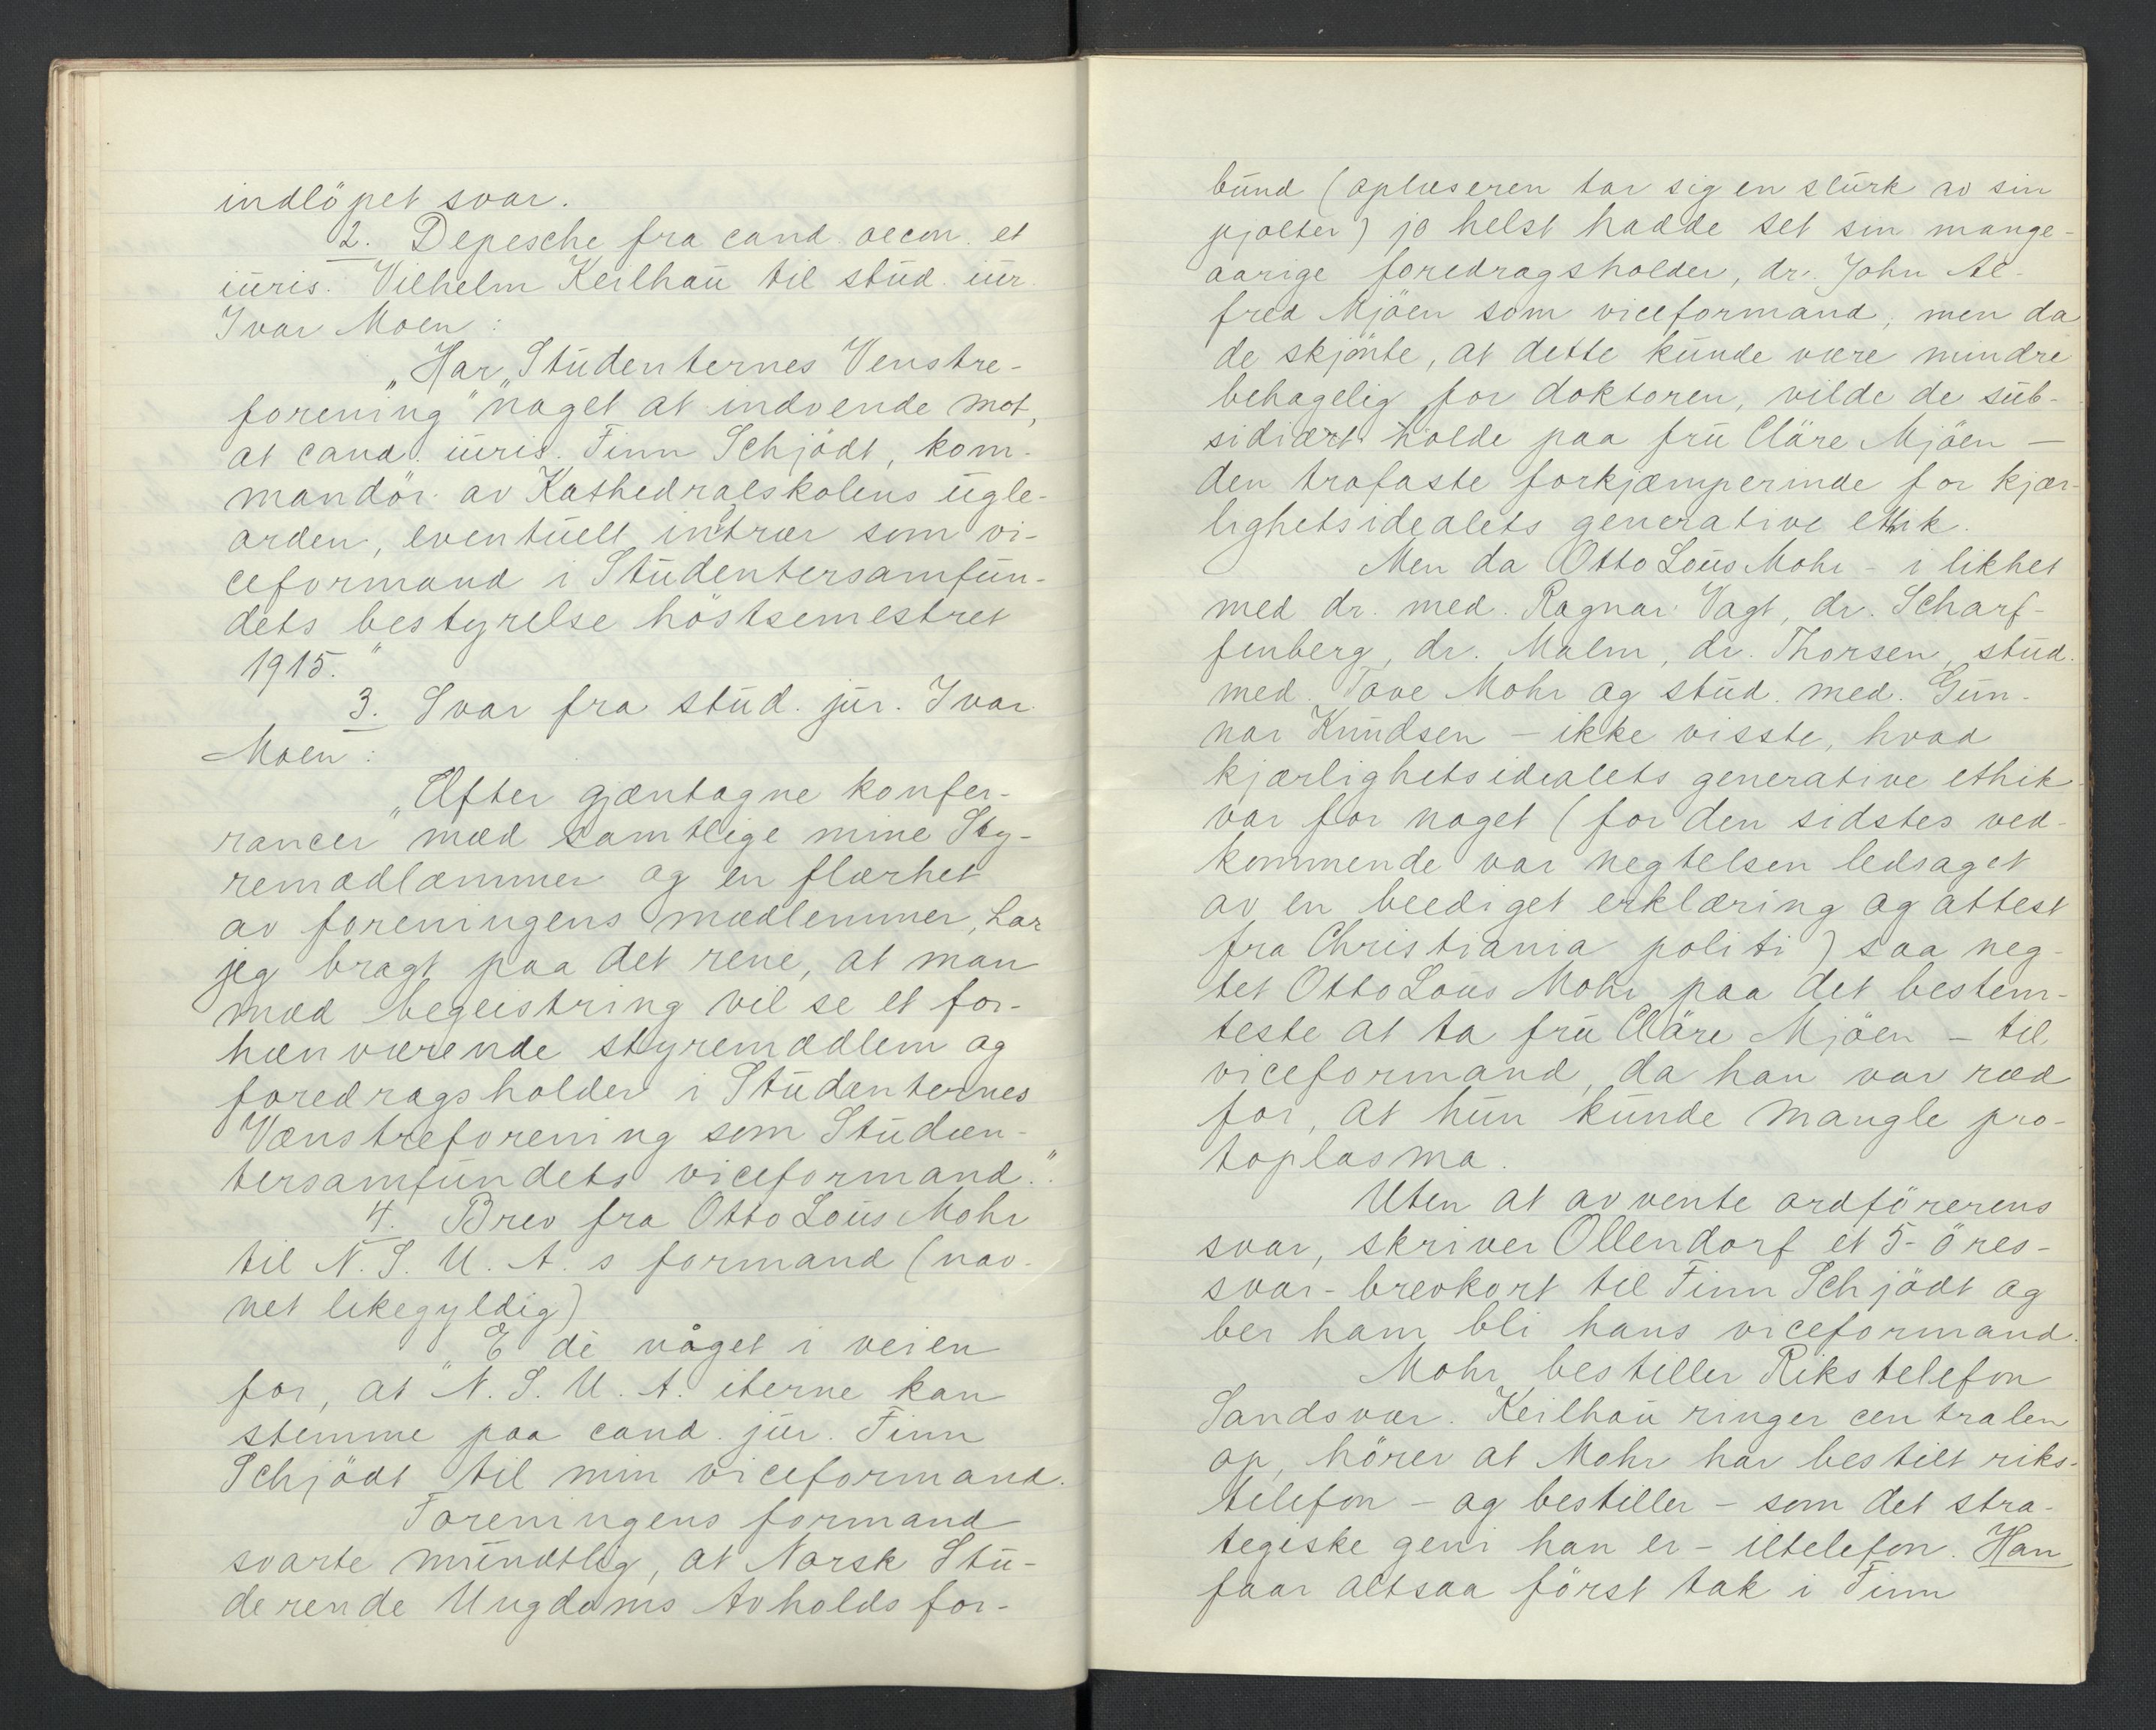 indlöpet svar.
2. Depesche fra cand. oecon. et
iuris. Vilhelm Keilhau til stud. iur.
Ivar Moen:
„Har „Studenternes Venstre-
forening" noget at indvende mot,
at cand. iuris. Finn Schjödt, kom-
mandör av Kathedralskolens ugle-
orden, eventuelt intrær som vi-
ceformand i Studentersamfun-
dets bestyrelse höstsemestret
1915."
3. Svar fra stud. jur. Ivar
Moen:
„Efter gjæntagne konfer-
rancer mæd samtlige mine Sty-
remædlæmmer og en flærhet
av foreningens mædlemmer, har
jeg bragt paa det rene, at man
mæd begeistring vil se et for-
hænværende styremædlem og
foredragsholder i Studænternes
Vænstreforening som Studæn-
tersamfundets viceformand.".
4. Brev fra Otto Lous Mohr
til N. S. U. A. s formand (nav-
net likegyldig)
„E de någet i veien
for, at N. S. U. A. iterne kan
stemme paa cand. jur. Finn
Schjödt til min viceformand.
Foreningens formand
svarte mundtlig, at Norsk Stu-
derende Ungdoms Avholdsfor-
bund (oplæseren tar sig en slurk av sin
pjolter) jo helst hadde set sin mange-
aarige foredragsholder, dr. John Al-
fred Mjöen som viceformand, men da
de skjönte, at dette kunde være mindre
behagelig for doktoren, vilde de sub-
sidiært holde paa fru Cläre Mjöen —
den trofaste forkjæmperinde for kjær-
lighetsidealets generative ethik.
Men da Otto Lous Mohr - i likhet
med dr. med. Ragnar Vogt, dr. Scharf-
fenberg, dr. Malm, dr. Thorsen, stud.
med. Tove Mohr og stud. med. Gun-
nar Knudsen - ikke visste, hvad
kjærlighetsidealets generative ethik
var for noget (for den sidstes ved-
kommende var negtelsen ledsaget
av en beediget erklæring og attest
fra Christiania politi) saa neg-
tet Otto Lous Mohr paa det bestem-
teste at ta fru Cläre Mjöen - til
viceformand, da han var ræd
for, at hun kunde mangle pro-
toplasma.
Uten at avvente ordförerens
svar, skriver Ollendorf et 5-öres-
svar-brevkort til Finn Schjödt og
ber ham bli hans viceformand.
Mohr bestiller Rikstelefon
Sandsvær. Keilhau ringer centralen
op, hörer at Mohr har bestilt riks-
telefon - og bestiller - som det stra-
tegiske geni han er - iltelefon. Han
faar altsaa först tak i Finn